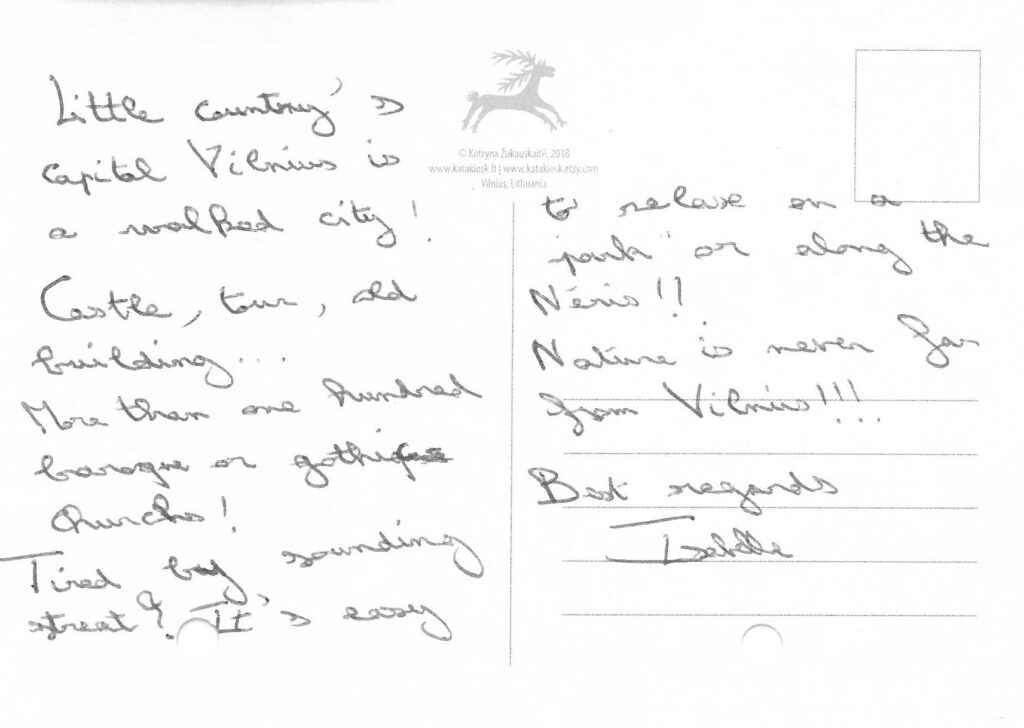 Little country's
capital Vilnius is
a walked city!
Castle, tour, old
building...
More than one hundred
baroque or gothic
churchs!
Tired by sounding
street? It's easy
© Kotryna Žukauskaitė, 2018
www.katakiosk.lt | www.katakiosk.etsy.com
Vilnius, Lithuania
to relaxe on a
park or along the
Néris!!
Nature is never far
from Vilnius!!!
Best regards
Isabelle